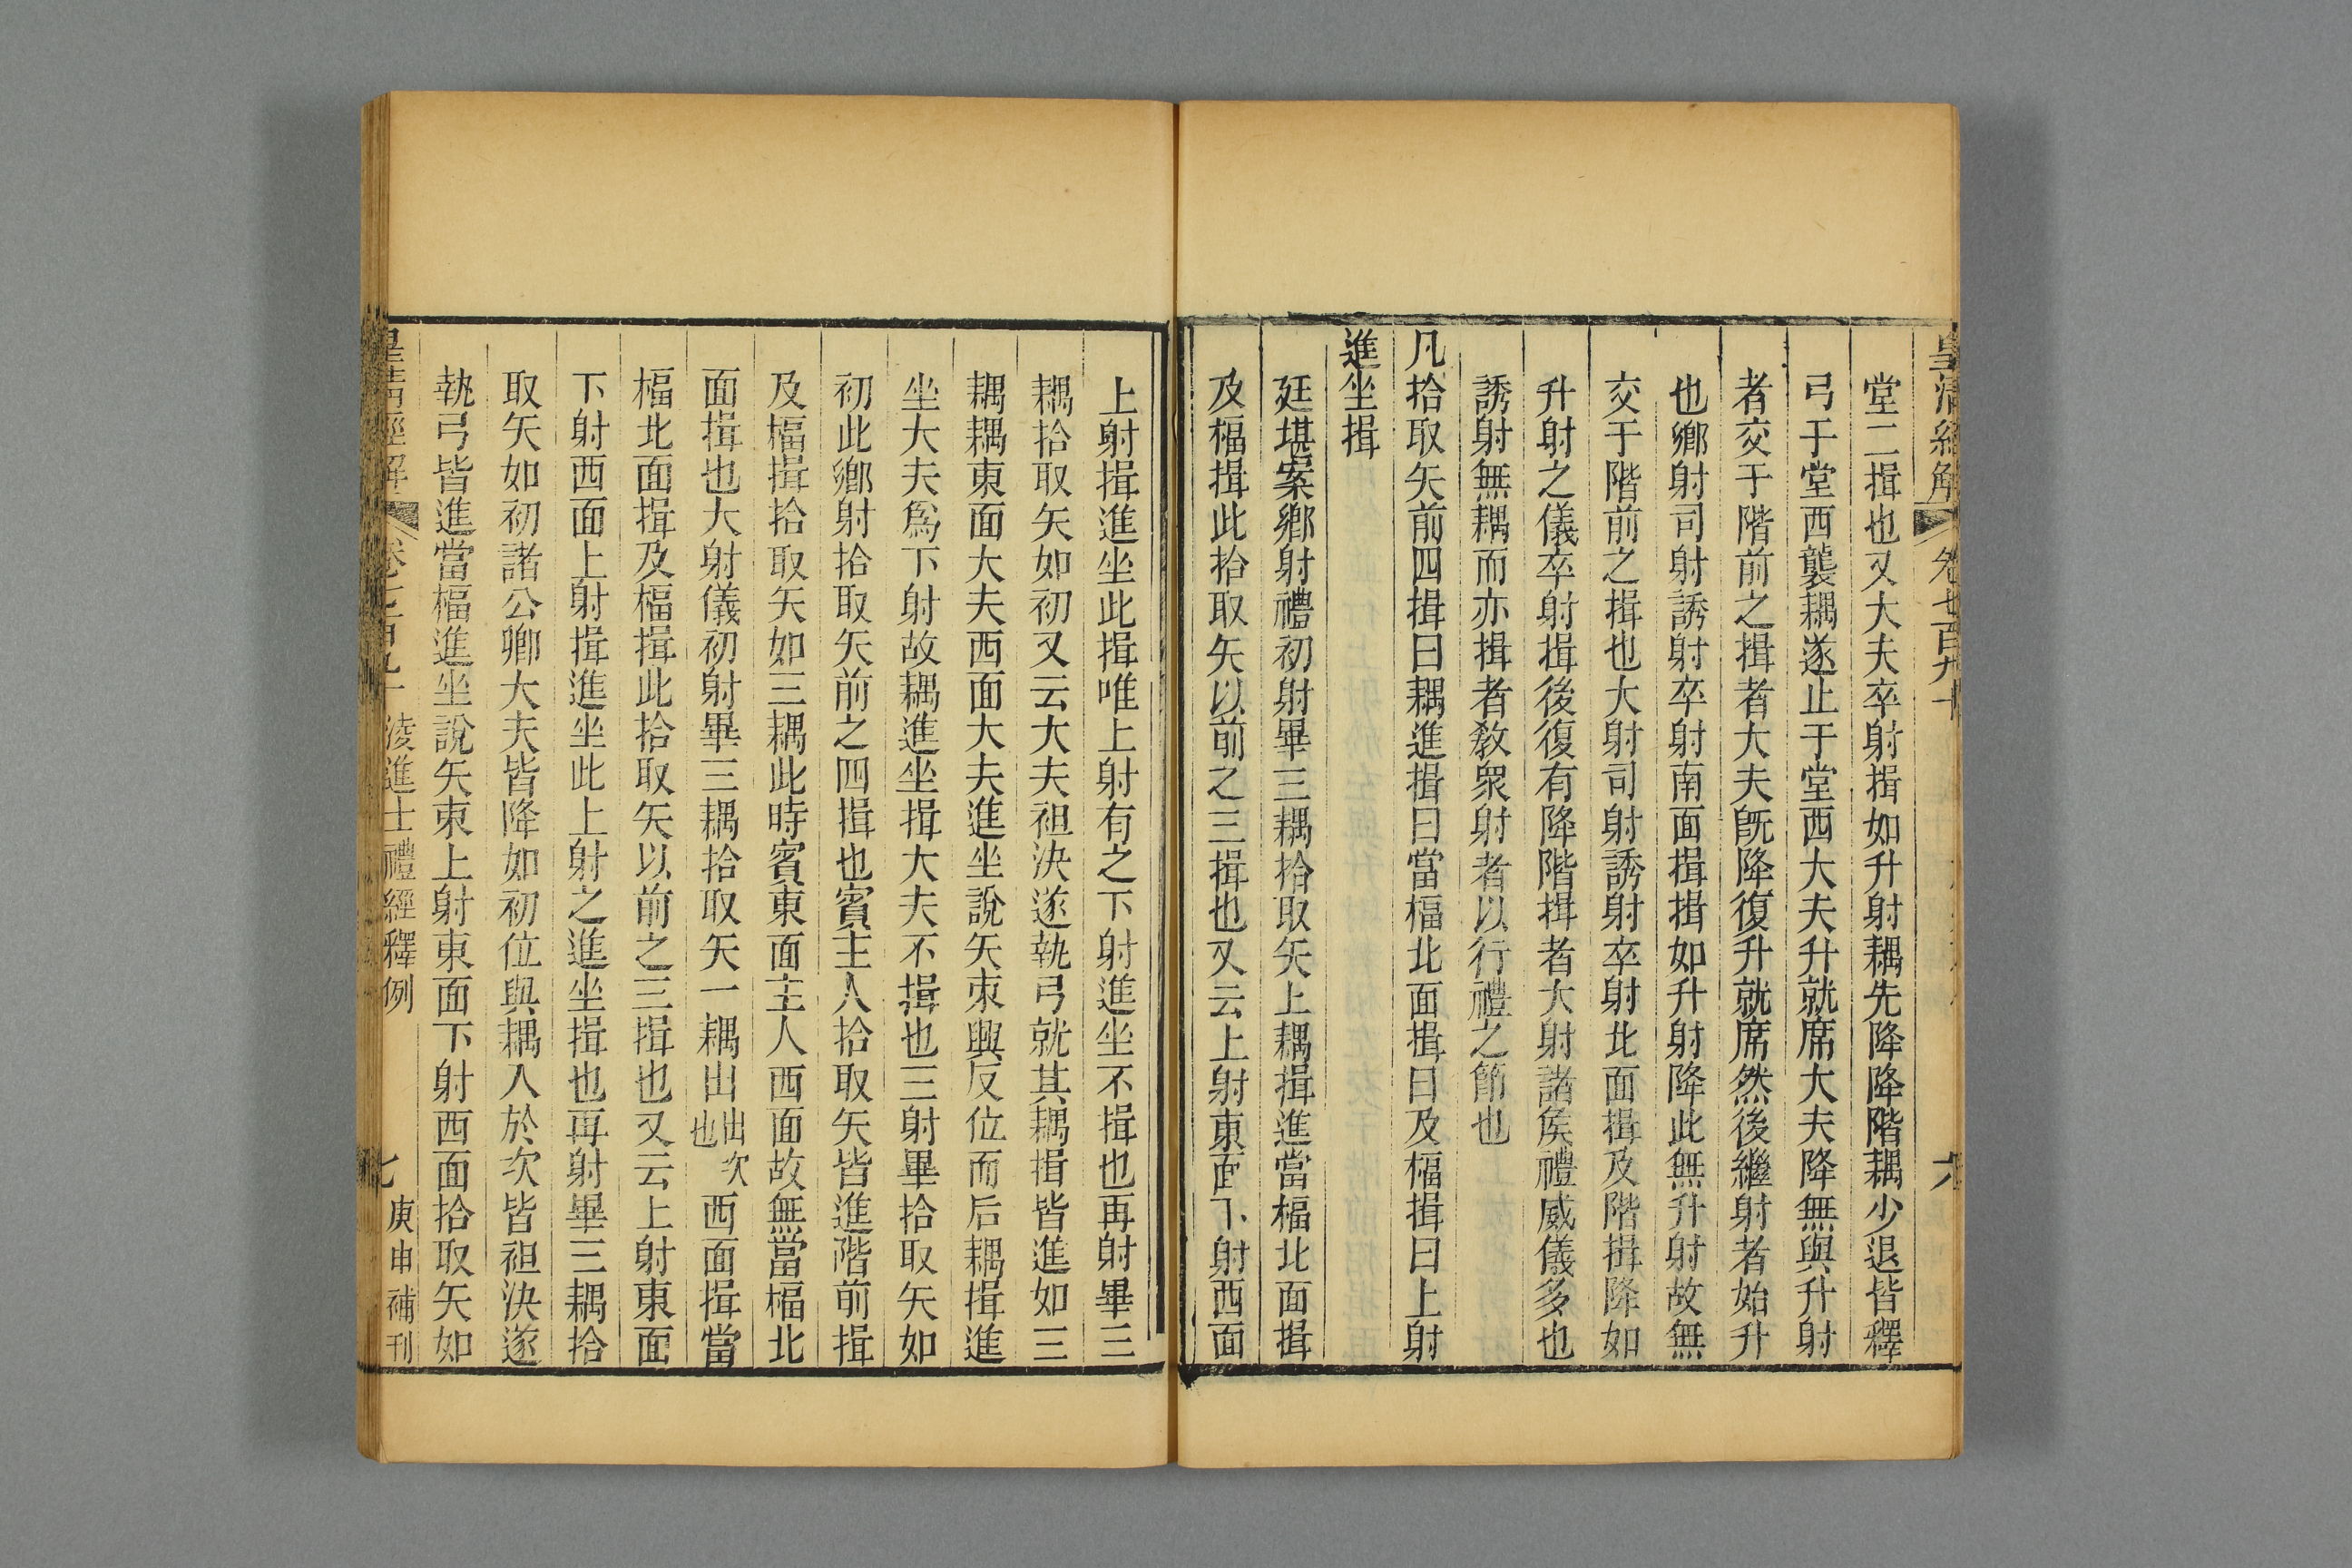 皇清經解 卷七百九十 六
堂二揖也又大夫卒射揖如升射耦先降降階耦少退皆釋
弓于堂西襲耦遂止于堂西大夫升就席大夫降無與升射
者交于階前之揖者大夫既降復升就席然後繼射者始升
也鄉射司射誘射卒射南面揖揖如升射射降此無升射故無
交于階前之揖也大射司射誘射卒射北面揖及階揖降如
升射之儀卒射揖後復有降階揖者大射諸侯禮威儀多也
誘射無耦而亦揖者教衆射者以行禮之節也
凡拾取矢前四揖曰耦進揖曰當楅北面揖曰及楅揖曰上射
進坐揖
廷堪案鄉射禮初射畢三耦拾取矢上耦揖進當楅北面揖
及楅揖此拾取矢以前之三揖也又云上射東面下射西面
上射揖進坐此揖唯上射有之下射進坐不揖也再射畢三
耦拾取矢如初又云大夫袒決遂執弓就其耦揖皆進如三
耦耦東面大夫西面大夫進坐說矢束興反位而后耦揖進
坐大夫爲下射故耦進坐揖大夫不揖也三射畢拾取矢如
初此鄉射拾取矢前之四揖也賓主人拾取矢皆進階前揖
及楅揖拾取矢如三耦此時賓東面主人西面故無當楅北
面揖也大射儀初射畢三耦拾取矢一耦出出次也西面揖當
楅北面揖及楅揖此拾取矢以前之三揖也又云上射東面
下射西面上射揖進坐此上射之進坐揖也再射畢三耦拾
取矢如初諸公卿大夫皆降如初位與耦入於次皆袒決遂
執弓皆進當楅進坐說矢束上射東面下射西面拾取矢如
皇清經解 卷七百九十 淩進士禮經釋例 七 庚申補刊